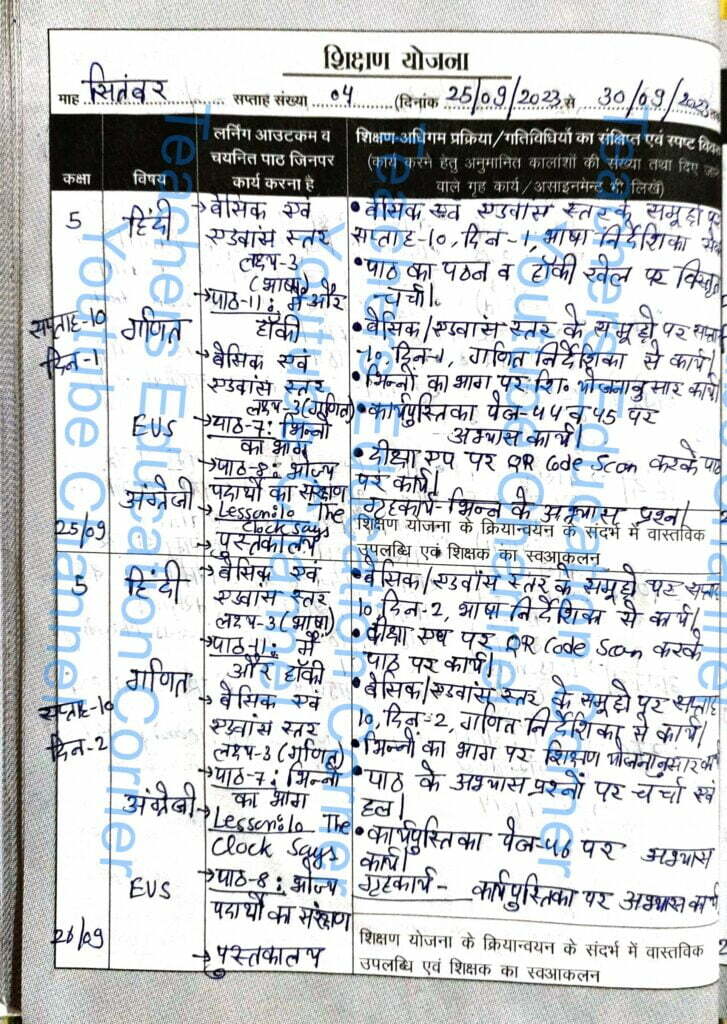 शिक्षण योजना
माह सितंबर सप्ताह संख्या 04 (दिनांक 25/09/2023 से 30/09/2023
कक्षा
विषय
लर्निंग आउटकम व
चयनित पाठ जिनपर
कार्य करना है
शिक्षण-अधिगम प्रक्रिया/गतिविधियों का संक्षिप्त एवं स्पष्ट
(कार्य करने हेतु अनुमानित कालांशों की संख्या तथा दिए
वाले गृह कार्य/असाइनमेंट भी लिखें)
5
सप्ताह-10
दिन-1
25/09
हिंदी
गणित
EVS
अंग्रेजी
→ बेसिक एवं
एडवांस स्तर
लक्ष्य-3
(भाषा)
→ पाठ-11: में और
हॉकी
बेसिक एवं
एडवांस स्तर
लक्ष्य-3(गणित)
→ पाठ-7: भिन्नों
का भाग
→ पाठ-8: भोज्य
पदार्थों का संरक्षण
→ Lesson:10 The
clock says
→ पुस्तकालय
• बेसिक एवं एडवांस स्तर के समूहों पर
सप्ताह-10, दिन-1, भाषा निर्देशिका से
• पाठ का पठन व हॉकी खेल पर
चर्चा।
• बेसिक/एडवांस स्तर के समूहों पर
-10, दिन-1, गणित निर्देशिका से कार्य।
• भिन्नों का भाग पर शि० योजनानुसार कार्य
• कार्यपुस्तिका पेज-44 व 45 पर
अभ्यास कार्य।
• दीक्षा एप पर QR Code Scan करके पाठ
पर कार्य।
गृहकार्य- भिन्न के अभ्यास प्रश्न।
शिक्षण योजना के क्रियान्वयन के संदर्भ में वास्तविक
उपलब्धि एवं शिक्षक का स्वआकलन
5
सप्ताह-10
दिन-2
26/09
हिंदी
गणित
अंग्रेजी
EVS
→ बेसिक एवं
एडवांस स्तर
लक्ष्य-3(भाषा)
→ पाठ-11: में
और हॉकी
→ बेसिक एवं
एडवांस स्तर
लक्ष्य-3(गणित)
→ पाठ-7: भिन्नों
का भाग
→ Lesson:10 The
Clock Says
→ पाठ-8: भोज्य
पदार्थों का संरक्षण
→ पुस्तकालय
• बेसिक/एडवांस स्तर के समूहों पर
10, दिन-2, भाषा निर्देशिका से कार्य।
• दीक्षा एप पर QR Code Scan करके
पाठ पर कार्य।
• बेसिक/एडवांस स्तर के समूहों पर सप्ताह
10, दिन-2, गणित निर्देशिका से कार्य।
• भिन्नों का भाग पर शिक्षण योजनानुसार
• पाठ के अभ्यास प्रश्नों पर चर्चा एवं
हल।
• कार्यपुस्तिका पेज-46 पर अभ्यास
कार्य।
गृहकार्य- कार्यपुस्तिका पर अभ्यास कार्य
शिक्षण योजना के क्रियान्वयन के संदर्भ में वास्तविक
उपलब्धि एवं शिक्षक का स्वआकलन
Teachers Education Corner
Youtube Channel
Teachers Education Corner
Youtube Channel
Teachers Education Corner
Youtube Channel